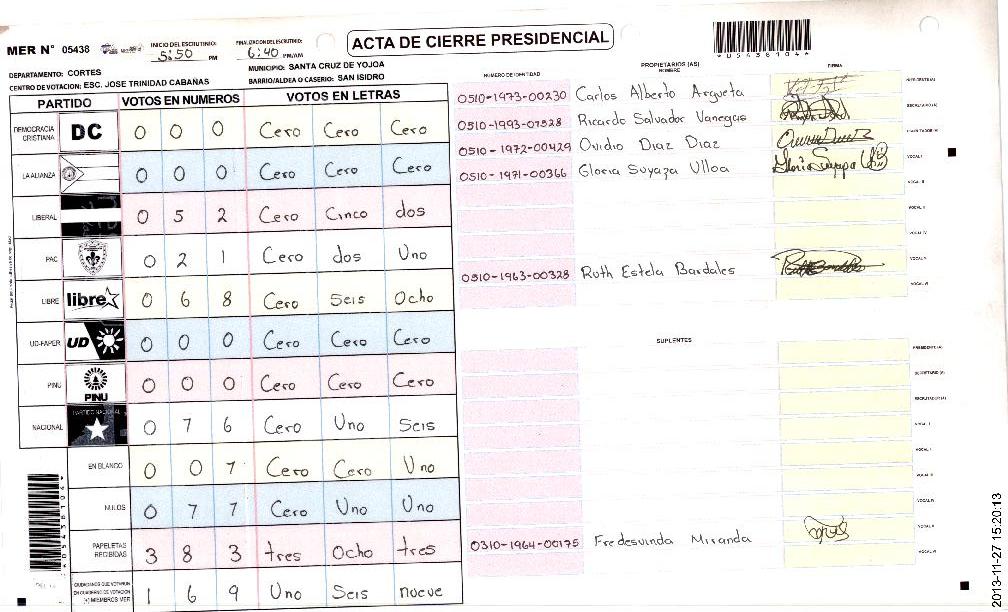 MER N° 05438
INICIO DEL ESCRUTINIO:
5:50 PM
FINALIZACION DEL ESCRUTINIO:
6:40 PM/AM
ACTA DE CIERRE PRESIDENCIAL
*05438104*
DEPARTAMENTO: CORTES
MUNICIPIO: SANTA CRUZ DE YOJOA
CENTRO DE VOTACION: ESC. JOSE TRINIDAD CABAÑAS
BARRIO/ALDEA O CASERIO: SAN ISIDRO
PARTIDO VOTOS EN NUMEROS VOTOS EN LETRAS
DEMOCRACIA CRISTIANA DC 0 0 0 Cero Cero Cero
LA ALIANZA 0 0 0 Cero Cero Cero
LIBERAL 0 5 2 Cero Cinco dos
PAC 0 2 1 Cero dos Uno
LIBRE libre 0 6 8 Cero Seis Ocho
UD-FAPER UD 0 0 0 Cero Cero Cero
PINU PINU 0 0 0 Cero Cero Cero
NACIONAL PARTIDO NACIONAL 0 1 6 Cero Uno Seis
EN BLANCO 0 0 1 Cero Cero Uno
NULOS 0 1 1 Cero Uno Uno
PAPELETAS RECIBIDAS 3 8 3 tres Ocho tres
CIUDADANOS QUE VOTARON EN CUADERNO DE VOTACION (+) MIEMBROS MER 1 6 9 Uno Seis nueve
*05438104*
NUMERO DE IDENTIDAD
PROPIETARIOS (AS)
NOMBRE
FIRMA
0510-1973-00230 Carlos Alberto Argueta PRESIDENTE(A)
0510-1993-07528 Ricardo Salvador Vanegas SECRETARIO(A)
0510-1972-00429 Ovidio Diaz Diaz ESCRUTADOR(A)
0510-1971-00366 Gloria Suyapa Ulloa VOCAL I
VOCAL II
VOCAL III
VOCAL IV
0510-1963-00328 Ruth Estela Bardales VOCAL V
VOCAL VI
SUPLENTES
PRESIDENTE(A)
SECRETARIO(A)
ESCRUTADOR(A)
VOCAL I
VOCAL II
VOCAL III
VOCAL IV
0310-1964-00175 Fredesvinda Miranda VOCAL V
VOCAL VI
2013-11-27 15:20:13